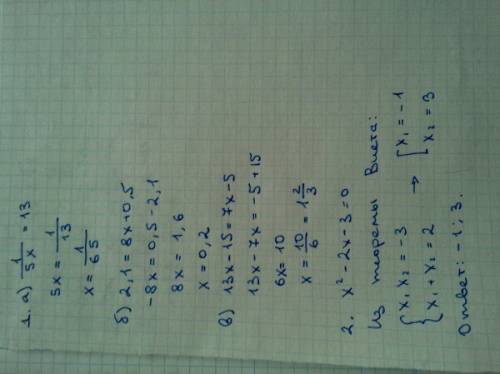 1. а) 1/5x = 13
5x = 1/13
x = 1/65
б) 2,1 = 8x+0,5
-8x = 0,5-2,1
8x = 1,6
x = 0,2
в) 13x-15=7x-5
13x-7x=-5+15
6x=10
x = 10/6 = 1 2/3
2. x²-2x-3=0
Из теоремы Виета:
{ x₁x₂ = -3 → [ x₁ = -1
{ x₁+x₂ = 2 [ x₂ = 3
Ответ: -1; 3.